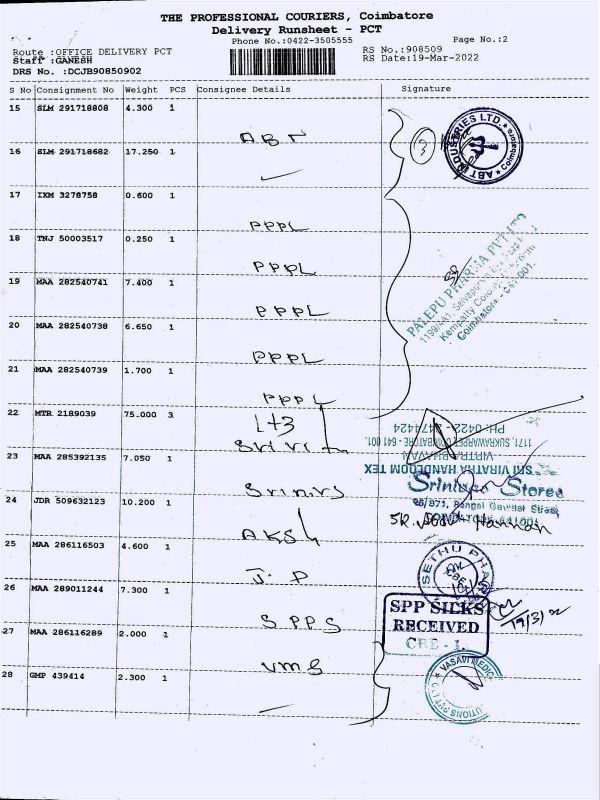 THE PROFESSIONAL COURIERS, Coimbatore
Delivery Runsheet - PCT
Phone No.:0422-3505555
Page No.:2
Route :OFFICE DELIVERY PCT
RS No.:908509
Staff :GANESH
RS Date:19-Mar-2022
DRS No. :DCJB90850902
S No Consignment No Weight PCS Consignee Details Signature
15 SLM 291718808 4.300 1
ABT
3
ABT INDUSTRIES LTD. Coimbatore
16 SLM 291718682 17.250 1
17 IXM 3278758 0.600 1
PPPL
18 TNJ 50003517 0.250 1
PPPL
PALEPU PHARMA PVT LTD
Kempatty Colony
Coimbatore - 641 001.
19 MAA 282540741 7.400 1
PPPL
20 MAA 282540738 6.650 1
PPPL
21 MAA 282540739 1.700 1
PPPL
22 MTR 2189039 75.000 3
1+3
PH: 0422 - 2474424
1171, SUKRAWARPET, COIMBATORE - 641 001.
SRI VIRATRA HANDLOOM TEX
23 MAA 285392135 7.050 1
Srinivas Stores
24 JDR 509632123 10.200 1
AKSL
25 MAA 286116503 4.600 1
J.P
SETHU PH
26 MAA 289011244 7.300 1
SPPS
SPP SILKS
RECEIVED
CBE - 1.
19/3/22
27 MAA 286116289 2.000 1
VMS
VASAVI MEDIC
UTIONS PVT LTD
28 GMP 439414 2.300 1